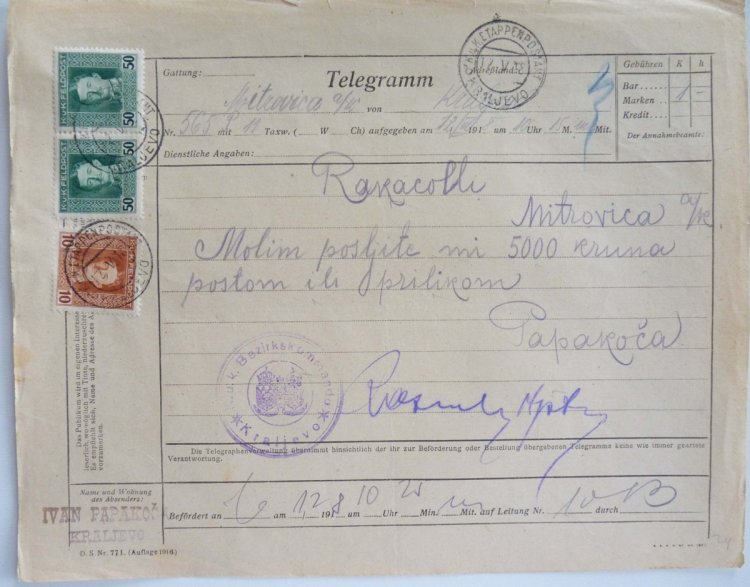 50
K.U.K. FELDPOST
50
K.U.K. FELDPOST
10
K.U.K. FELDPOST
K.u.K. ETAPPENPOSTAMT
KRALJEVO
Gattung:
Telegramm
Adreßland:
Gebühren K h
Bar
Marken 1 –
Kredit
Der Annahmebeamte:
Mitrovica a/K von
Nr. 565 mit 11 Taxw. ( W Ch) aufgegeben am 12 191 Uhr 15 M. Mit.
Dienstliche Angaben:
Rakacolli
Mitrovica a/K
Molim pošljite mi 5000 kruna
postom ili prilikom
Papakoča
K.u.k. Bezirkskommando
Kraljevo
Die Telegraphenverwaltung übernimmt hinsichtlich der ihr zur Beförderung oder Bestellung übergebenen Telegramme keine wie immer geartete
Verantwortung.
Das Publikum wird im eigenen Interesse
Es empfiehlt sich, Name und Adresse des
vorzumerken.
Name und Wohnung
des Absenders:
IVAN PAPAKOČ
KRALJEVO
Befördert an am 12 8 191 10 Uhr 25 Min. Mit. auf Leitung Nr. 10 durch
D. S. Nr. 771. (Auflage 1916.)